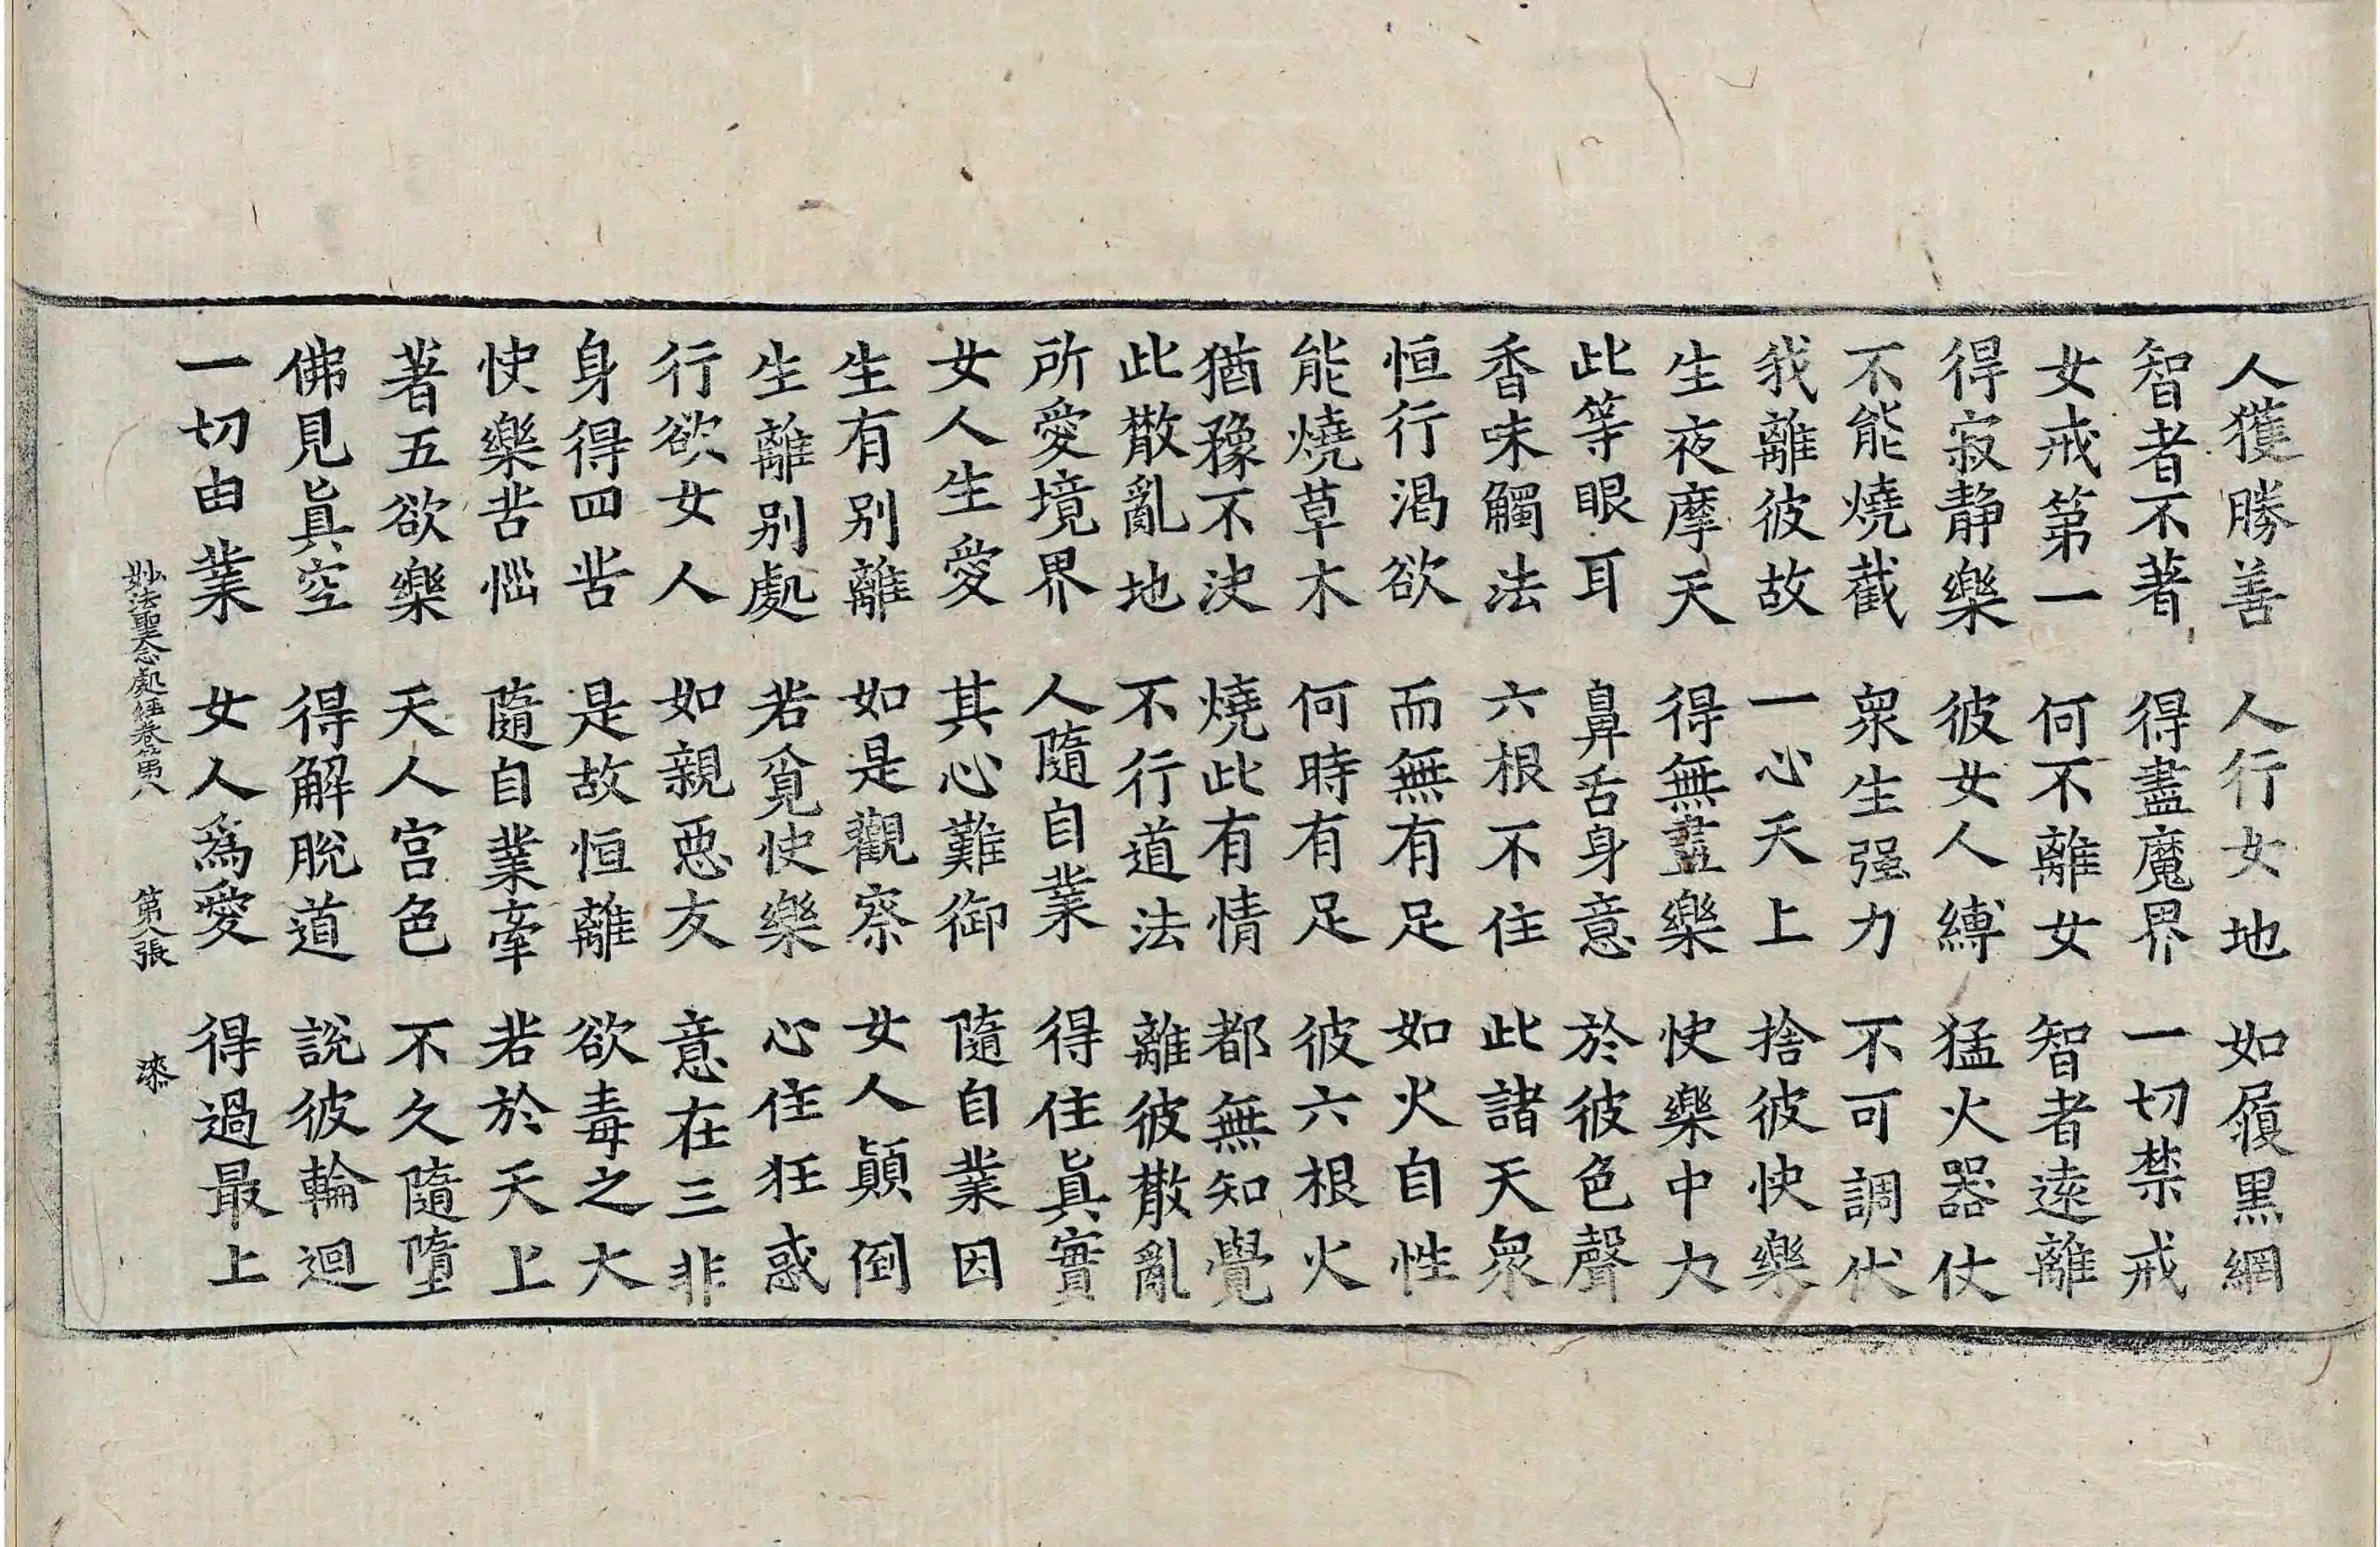 人獲勝善　人行女地　如履黑網
智者不著　得盡魔界　一切禁戒
女戒第一　何不離女　智者遠離
得寂靜樂　彼女人縛　猛火器仗
不能燒截　衆生强力　不可調伏
我離彼故　一心天上　捨彼快樂
生夜摩天　得無盡樂　快樂中力
此等眼耳　鼻舌身意　於彼色聲
香味觸法　六根不住　此諸天衆
恒行渴欲　而無有足　如火自性
能燒草木　何時有足　彼六根火
猶豫不決　燒此有情　都無知覺
此散亂地　不行道法　離彼散亂
所愛境界　人隨自業　得住眞實
女人生愛　其心難御　隨自業因
生有别離　如是觀察　女人顚倒
生離别處　若覓快樂　心住狂惑
行欲女人　如親惡友　意在三非
身得四苦　是故恒離　欲毒之大
快樂苦惱　隨自業牽　若於天上
著五欲樂　天人宫色　不久隨墮
佛見眞空　得解脫道　說彼輪迴
一切由業　女人爲愛　得過最上
妙法聖念處經卷第八　第八張　漆